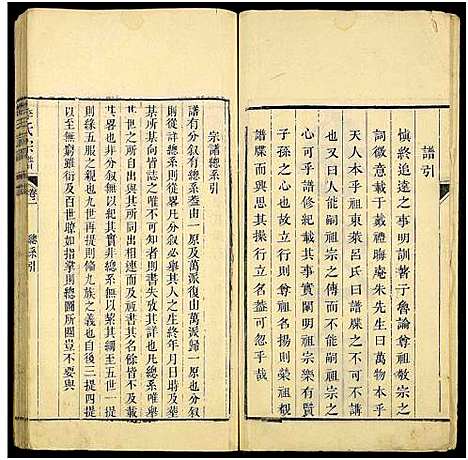 譜引
慎終追遠之事明訓著于魯論尊祖敬宗之
詞徽意載于戴禮晦庵朱先生曰萬物本乎
天人本乎祖東萊呂氏曰譜牒之不可不講
也又曰天子之人能嗣祖宗之傳而不能嗣祖宗之
心可乎譜修紀載其實闡明祖宗樂有賢
子孫其在斯乎立行則尊祖名揚則榮祖覩
譜牒而興思其操行立名蓋可忽乎哉
宗譜總系引
譜有分叙有總系蓋由一原及萬派復由萬派歸一原
則從詳總系則從畧凡分叙必舉其人之生終年月日時及葬
某所某向皆誌之唯不可知者則書失攷其詳也凡總系唯舉
其世之所自出與其所同出相連而祖書其名餘者無書焉
其畧也非分叙無以紀其實非總系無以絜其綱至五世一提
則緣五服之親也九世再提則倫九族之義也自後三提四提
以至無窮雖析而百世瞭如指掌則總圖所圖豈不要與
李氏宗譜
卷一
總系引